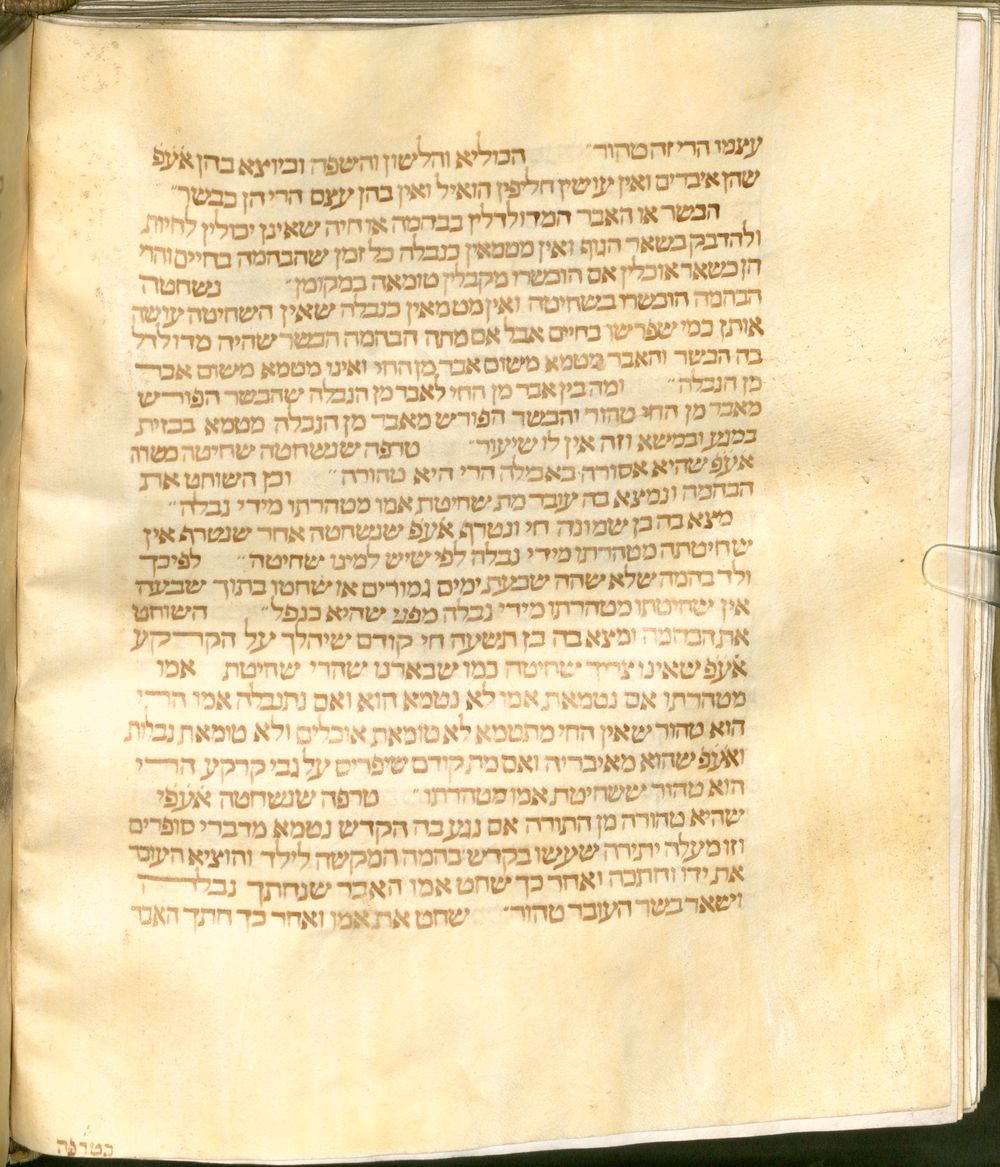 עצמו הרי זה טהור״ הכוליא והלשון והשפה וכיוצא בהן אע̇פ̇
שהן איברים ואין עושין חליפין הואיל ואין בהן עצם הרי הן כבשר״
הבשר או האבר המדולדלין בבהמה או חיה שאינן יכולין לחיות
ולהדבק בשאר הגוף ואין מטמאין כנבלה כל זמן שהבהמה בחיים והרי
הן כשאר אוכלין אם הוכשרו מקבלין טומאה במקומן״ נשחטה
הבהמה הוכשרו בשחיטה ואין מטמאין כנבלה שאין השחיטה עושה
אותן כמי שפרשו בחיים אבל אם מתה הבהמה הבשר שהיה מדולדל
בה הכשר והאבר מטמא משום אבר מן החי ואינו מטמא משום אבר
מן הנבלה״ ומה בין אבר מן החי לאבר מן הנבלה שהבשר הפורש
מאבר מן החי טהור והבשר הפורש מאבר מן הנבלה מטמא בכזית
במגע ובמשא וזה אין לו שיעור״ טרפה שנשחטה שחיטה כשרה
אע̇פ̇ שהיא אסורה באכילה הרי היא טהורה״ וכן השוחט את
הבהמה ונמצא בה עובר מת שחיטת אמו מטהרתו מידי נבלה״
מצא בה בן שמונה חי ונטרף אע̇פ̇ שנשחטה אחר שנטרף אין
שחיטתה מטהרתו מידי נבלה לפי שיש למינו שחיטה״ לפיכך
ולד בהמה שלא שהה שבעת ימים גמורים אז שחטו בתוך שבעה
אין שחיטתו מטהרתו מידי נבלה מפני שהיא כנפל״ השוחט
את הבהמה ומצא בה בן תשעה חי קודם שיהלך על הקרקע
אע̇פ̇ שאינו צריך שחיטה כמו שבארנו שהרי שחיטת אמו
מטהרתו אם נטמאת אמו לא נטמא הוא ואם נתנבלה אמו הרי
הוא טהור שאין החי מתטמא לא טומאת אוכלים ולא טומאת נבלות
ואע̇פ̇ שהוא מאיבריה ואם מת קודם שיפריס על גבי קרקע הרי
הוא טהור ששחיטת אמו מטהרתו״ טרפה שנשחטה אע̇פ̇י
שהיא טהורה מן התורה אם נגע בה הקדש נטמא מדברי סופרים
וזו מעלה יתירה שעשו בקדש בהמה המקשה לילד והוציא העובר
את ידו וחתכה ואחר כך שחט אמו האבר שנחתך נבלה
ושאר בשר העובר טהור״ שחט את אמו ואחר כך חתך האבר